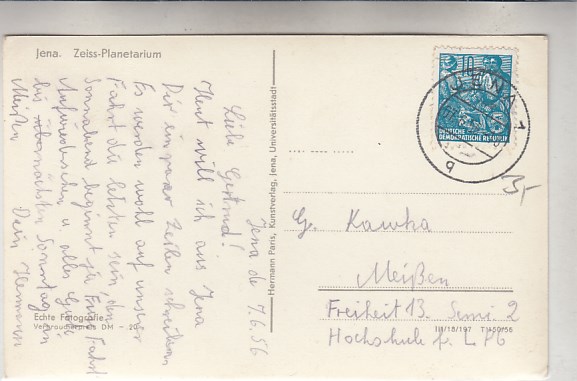 Jena. Zeiss-Planetarium
Jena de 7.6.56
Liebe Gertrud!
Heut will ich aus Jena
Dir ein paar Zeilen schreiben
Es werden wohl auf unserer
Fahrt die letzten sein, denn
Sonnabend beginnt die
Aufwiedersehen u. alles Gute
bis übernächsten Sonntag in
Meißen Dein Hermann
Echte Fotografie
Verbraucherpreis DM – 20
Hermann Paris, Kunstverlag, Jena, Universitätsstadt
JENA 1
b
10
DEUTSCHE
DEMOKRATISCHE REPUBLIK
3,-
G. Kawka
Meißen
Freiheit 13. Semi 2
Hochschule f. LPG
III/18/197 T 1150/56